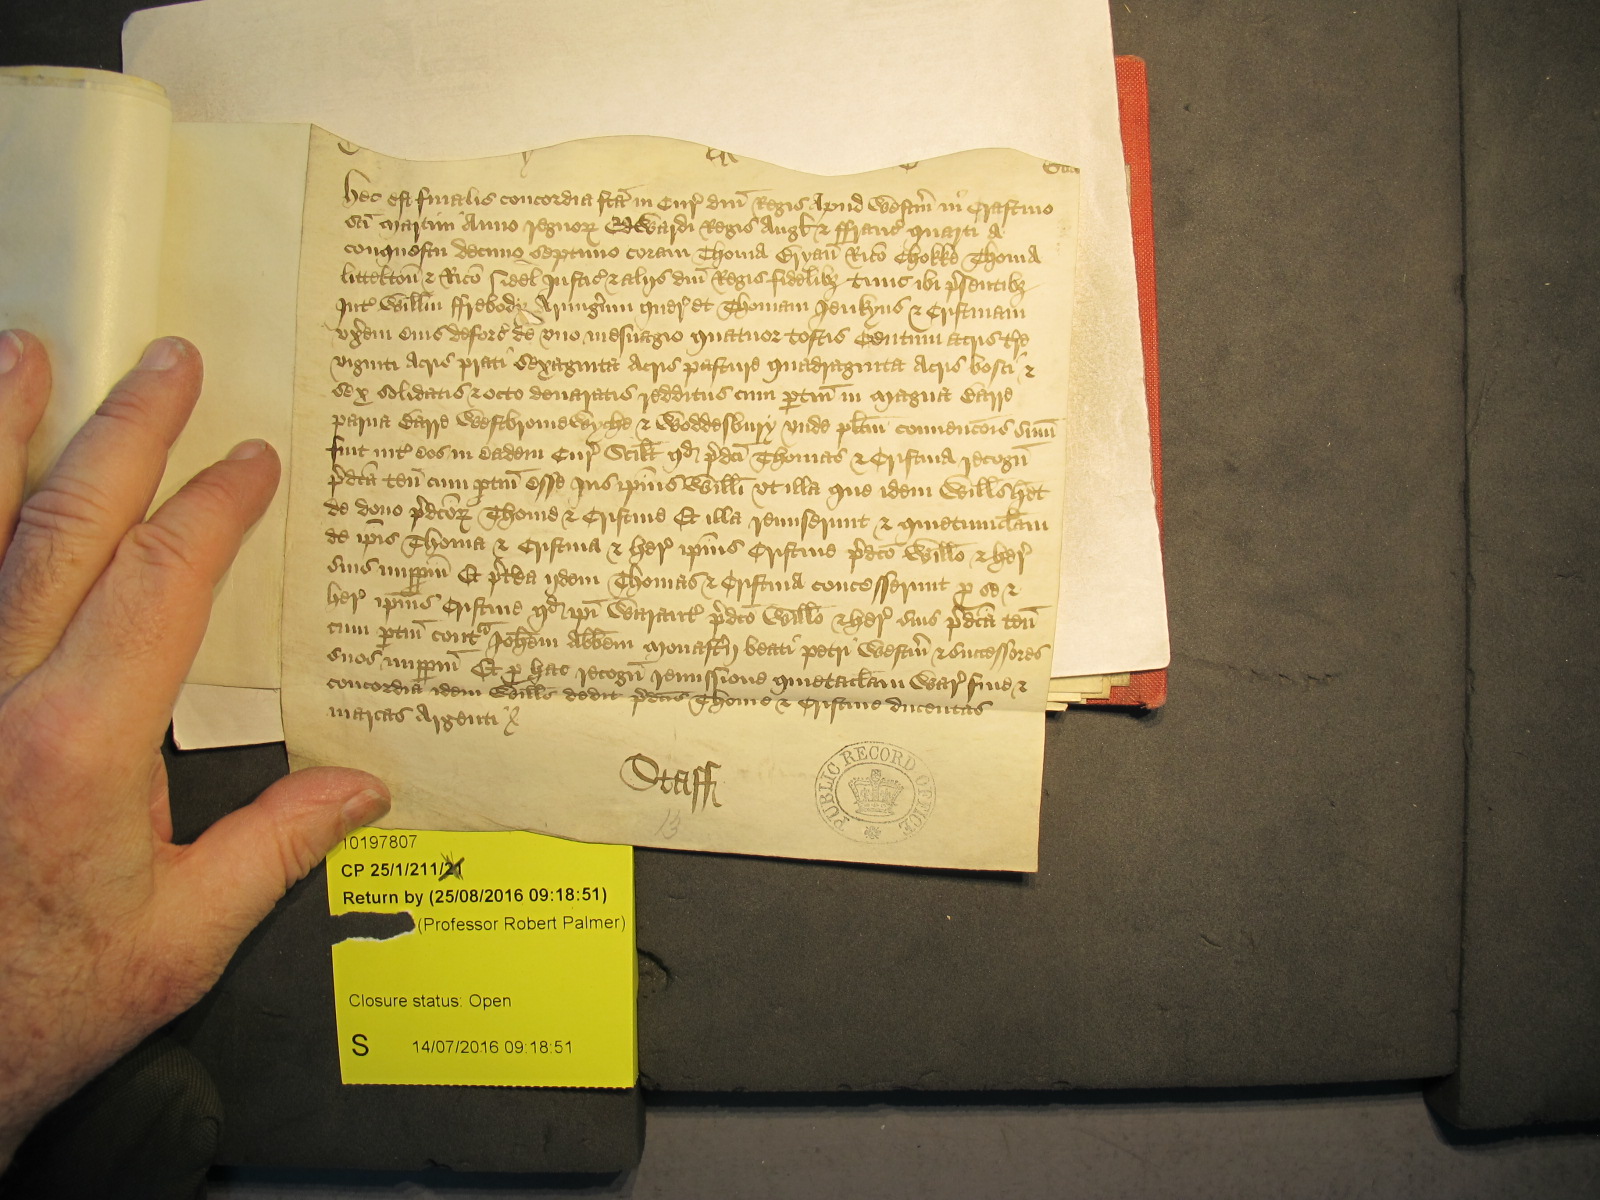 hec est finalis concordia fca in Cur dni Regis Apud Westm in Crastino
sci Martini Anno regnor Edwardi Regis Angl & ffranc quarti a
conquestu decimo septimo coram Thoma Bryan Rico Chokke Thoma
littelton & Rico Neel Justic & alijs dni Regis fidelibz tunc ibi psentibz
Int Willm ffrebody Armigum quer et Thomam Jenkyns & Cristinam
vxem eius deforc de vno mesuagio quatuor toftis Centum acris tre
viginti Acris prati sexaginta Acris pasture quadraginta Acris bosci &
sex solidatis & octo denaratis redditus cum ptin in magna Barre
parua Barre Westbromewyche & Woddesbury vnde plitm convencois sum
fuit int eos in eadem Cur Scilt qd pdci Thomas & Cristina recogn
pdca ten cum ptin esse Jus ipius Willi vt illa que idem Wills het
de dono pdcor Thome & Cristine Et illa remiserunt & quietumclam
de ipis Thoma & Cristina & her ipius Cristine pdco Willo & her
suis imppm Et ptea ijdem Thomas & Cristina concesserunt p se &
her ipius Cristine qd ipi Warant pdco Willo & her suis pdca ten
cum ptin cont Johem Abbem Monastij beati petri Westm & successores
suos imppm Et p hac recogn remissione quietaclam War fine &
concordia idem Wills dedit pdcis Thome & Cristine ducentas
marcas Argenti
Staff
13
PUBLIC RECORD OFFICE
10197807
CP 25/1/211/21
Return by (25/08/2016 09:18:51)
(Professor Robert Palmer)
Closure status: Open
S 14/07/2016 09:18:51